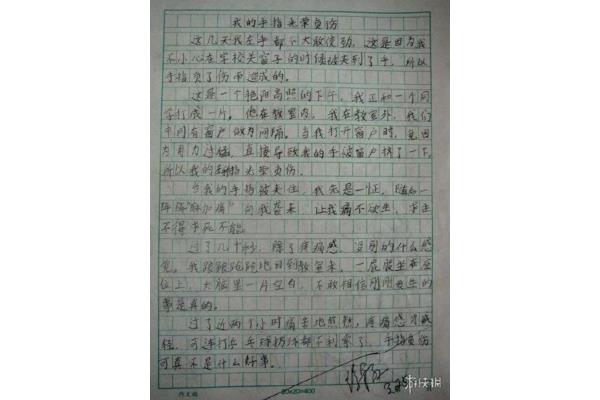 我的手指光荣负伤
这几天我左手都不大敢使劲，这是因为我
不小心在学校关窗子的时候被夹到了手，所以
手指负了伤而造成的。
这是一个艳阳高照的下午，我正和一个同
学打成一片。他在教室内，我在教室外，我们
中间有窗户做为间隔。当我打开窗户时，竟因
为用力过猛，直接导致我的手被窗户挤了一下，
所以我的手指光荣负伤。
当我的手指被夹住，我先是一怔，随后一
阵阵"麻加痛"向我袭来，让我痛不欲生，求生
不得求死不能。
过了几十秒，除了疼痛感，没别的什么感
觉。我踉踉跄跄地回到教室来，一屁股坐在座
位上，大脑里一片空白，不敢相信刚刚发生的
事是真的。
过了近两个小时痛苦地煎熬，疼痛感才减
轻，可连打乒乓球都不利索了，手指负伤
可真不是什么好事。
20×20=400
作文纸
游侠网